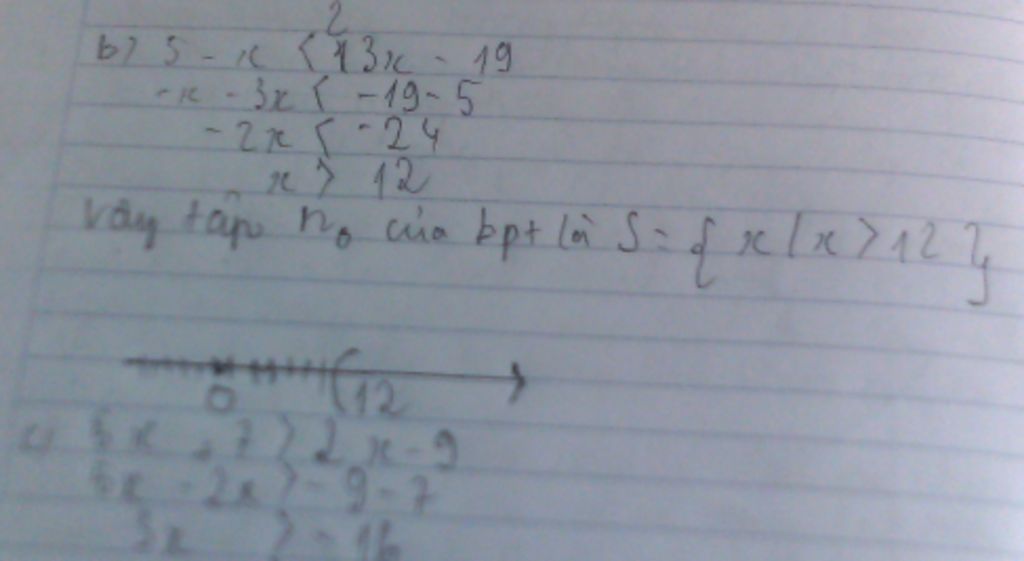 2
b) 5 - x < 13x - 19
-x - 3x < -19 - 5
-2x < -24
x > 12
Vậy tập n₀ của bpt là S = { x / x > 12 }
0 ( 12
c) 5x + 7 > 2x - 9
5x - 2x > - 9 - 7
3x > - 16